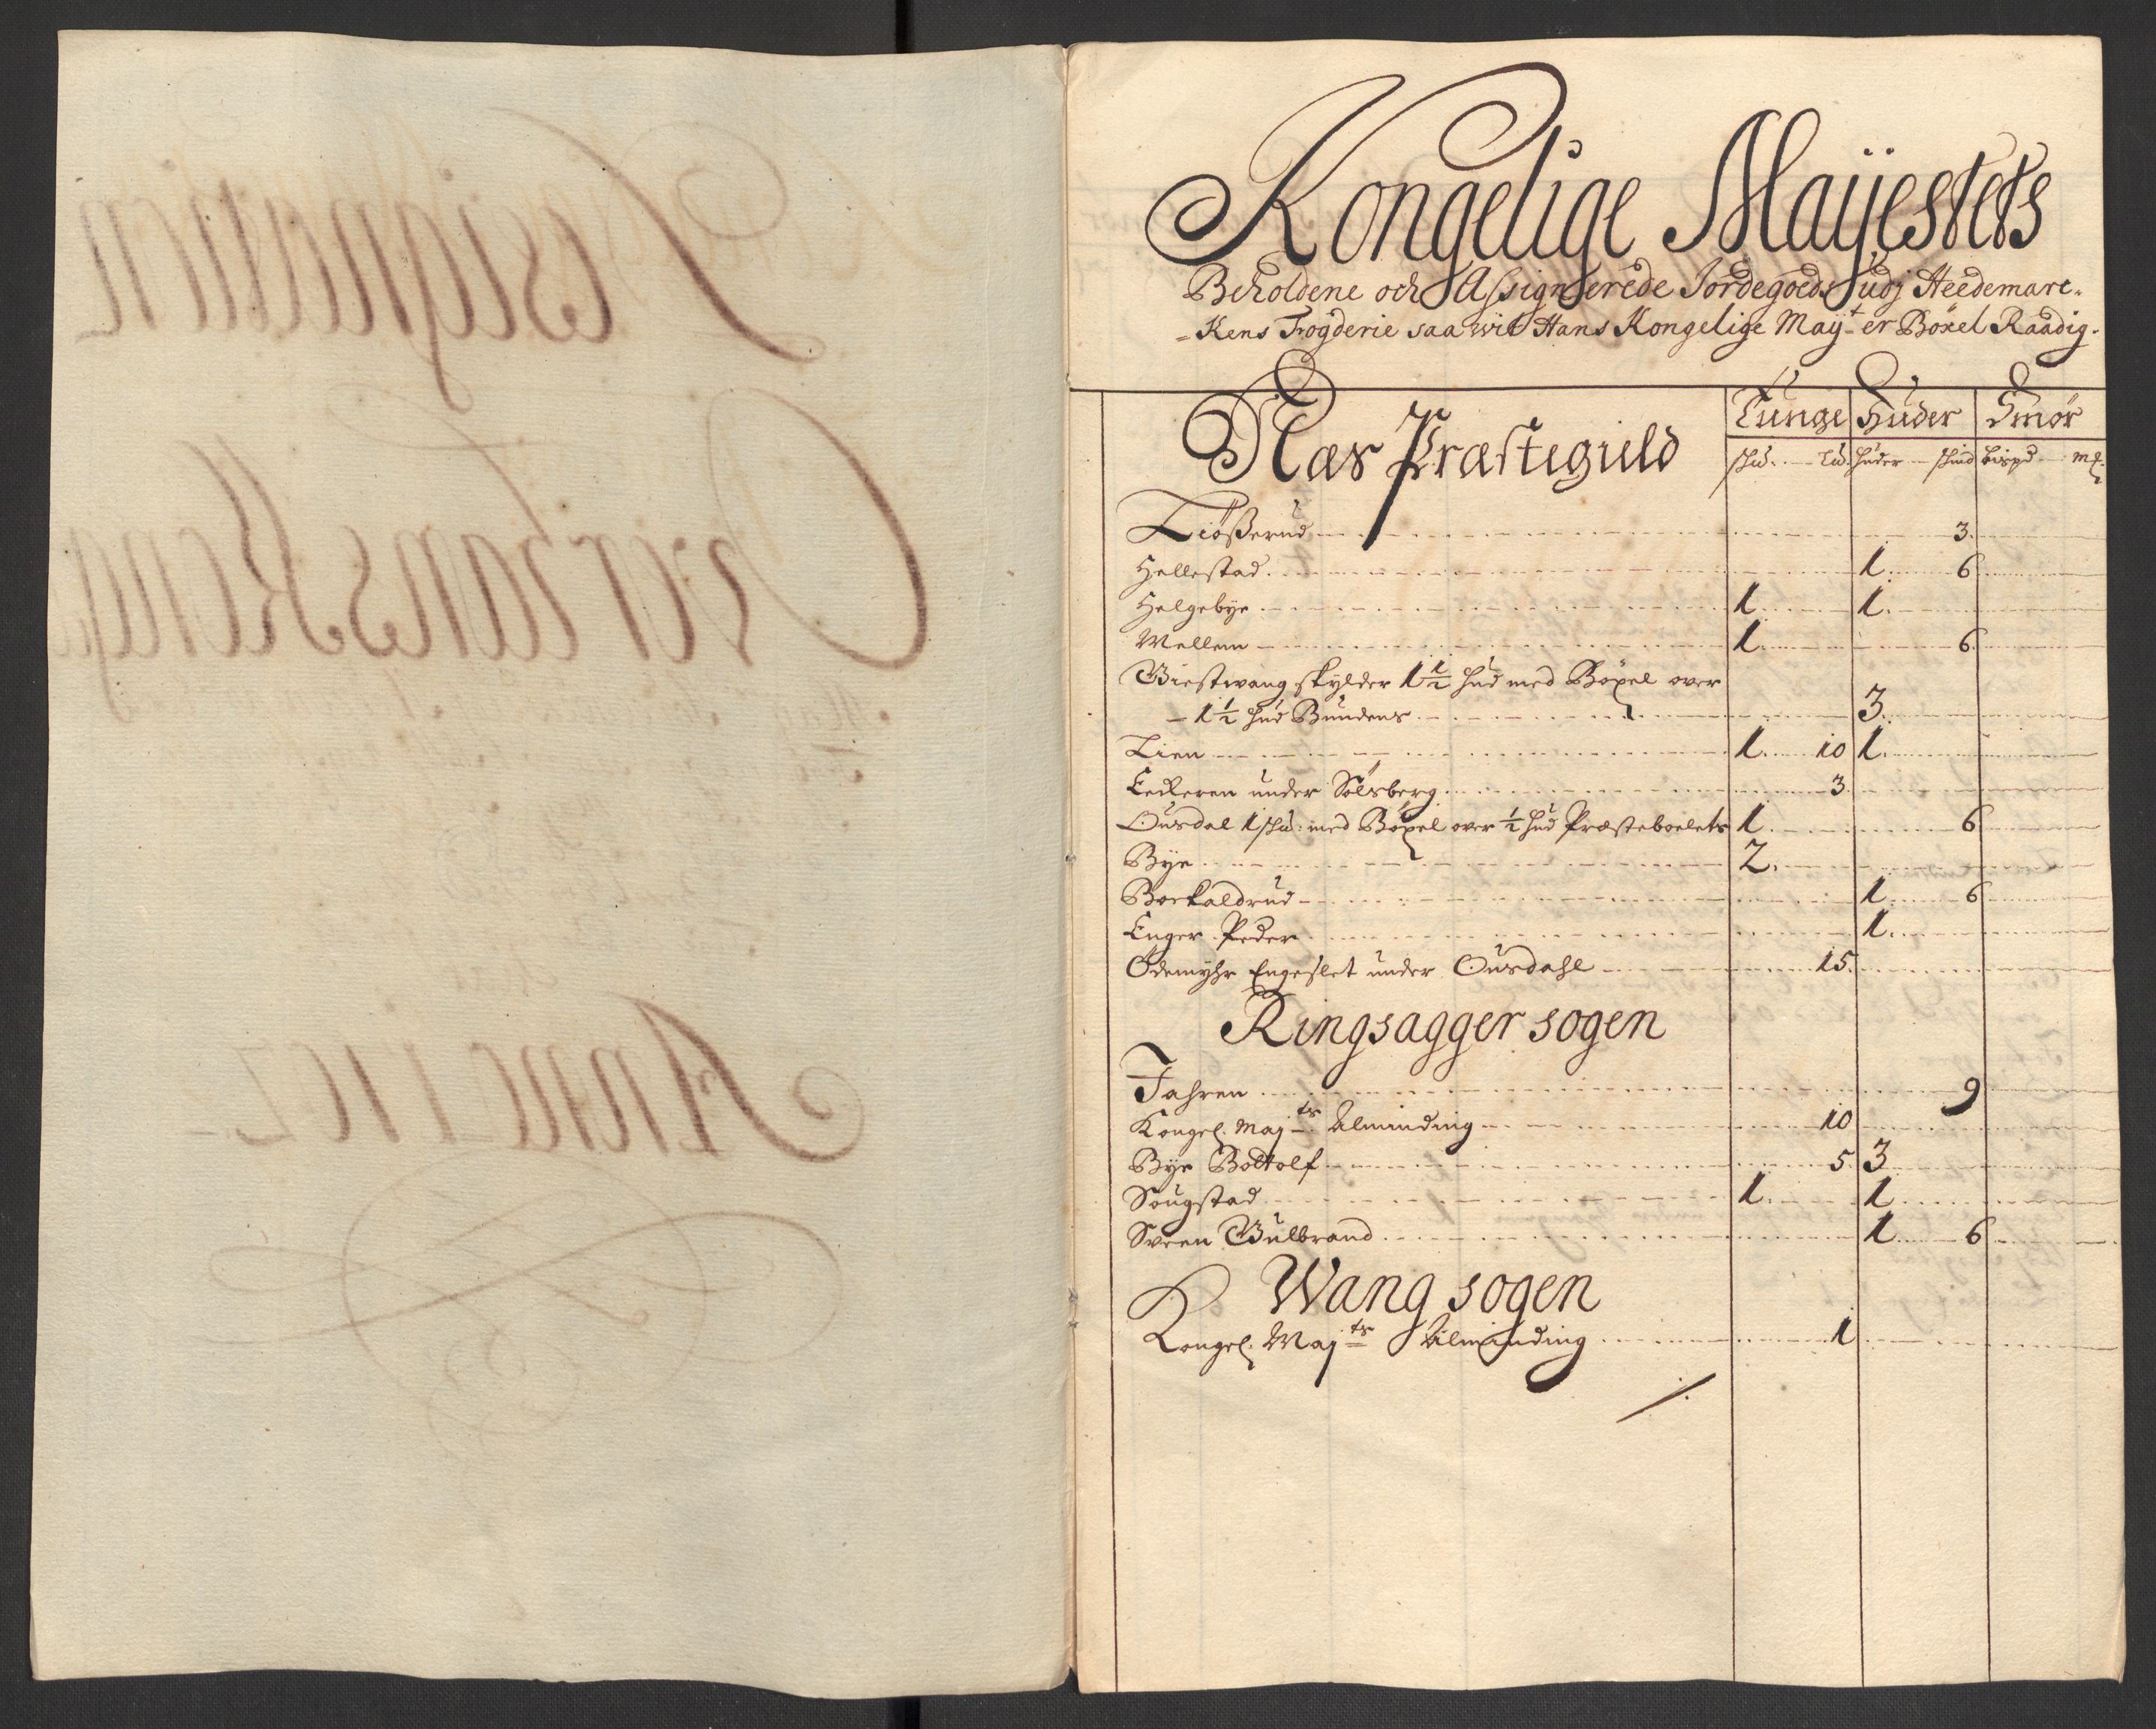 Kongelige Maÿestets
Beholdene och Assignerede Jordegoeds udj Heedemarc-
-Kens Fogderie saa wit Hans Kongelige Maÿt er Böxel Raadig.
Næs Præstegield
Tunge Huder Smör
schũ. Lũ. huder schind bispd mk.
Kiößerud 3.
Hellestad 1. 6
Helgebye 1. 1.
Mellem 1. 6.
Giestwang skylder 1½ hud med Böxel over
- 1½ hud Bundens 3.
Lien 1. 10 1.
Eeckeren under Sölsberg 3.
Ousdal 1 schũ: med Böxel over ½ hud Præsteboelets 1. 6
Bye 2.
Borkaldrud 1. 6
Enger Peder 1.
Ödemyhr Engeslet under Ousdahl 15.
Ringsagger sogen
Jahren 9
Kongel. Majts Alminding 10
Bye Bottolf 5 3
Sougstad 1. 1
Sveen Gulbrand 1 6
Wang sogen
Kongel. Majts Alminding 1